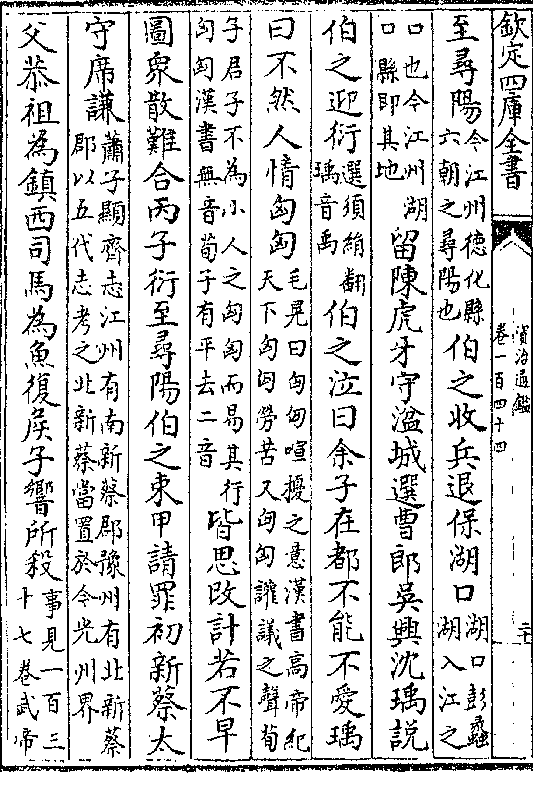 欽定四庫全書
資治通鑑
卷一百四十四
二十
至尋陽今江州德化縣六朝之尋陽也伯之收兵退保湖口湖口彭蠡湖入江之
口也今江州湖口縣即其地留陳虎牙守湓城選曹郎吳興沈瑀説
伯之迎衍選須絹翻瑀音禹伯之泣曰余子在都不能不愛瑀
曰不然人情匈匈毛晃曰匈匈喧擾之意漢書高帝紀天下匈匈勞苦又匈匈讙議之聲荀
子君子不為小人之匈匈而易其行匈匈漢書無音荀子有平去二音皆思改計若不早
圖衆散難合丙子衍至尋陽伯之束甲請罪初新蔡太
守席謙蕭子顯齊志江州有南新蔡郡豫州有北新蔡郡以五代志考之北新蔡當置於今光州界
父恭祖為鎮西司馬為魚復侯子響所殺事見一百三十七卷武帝